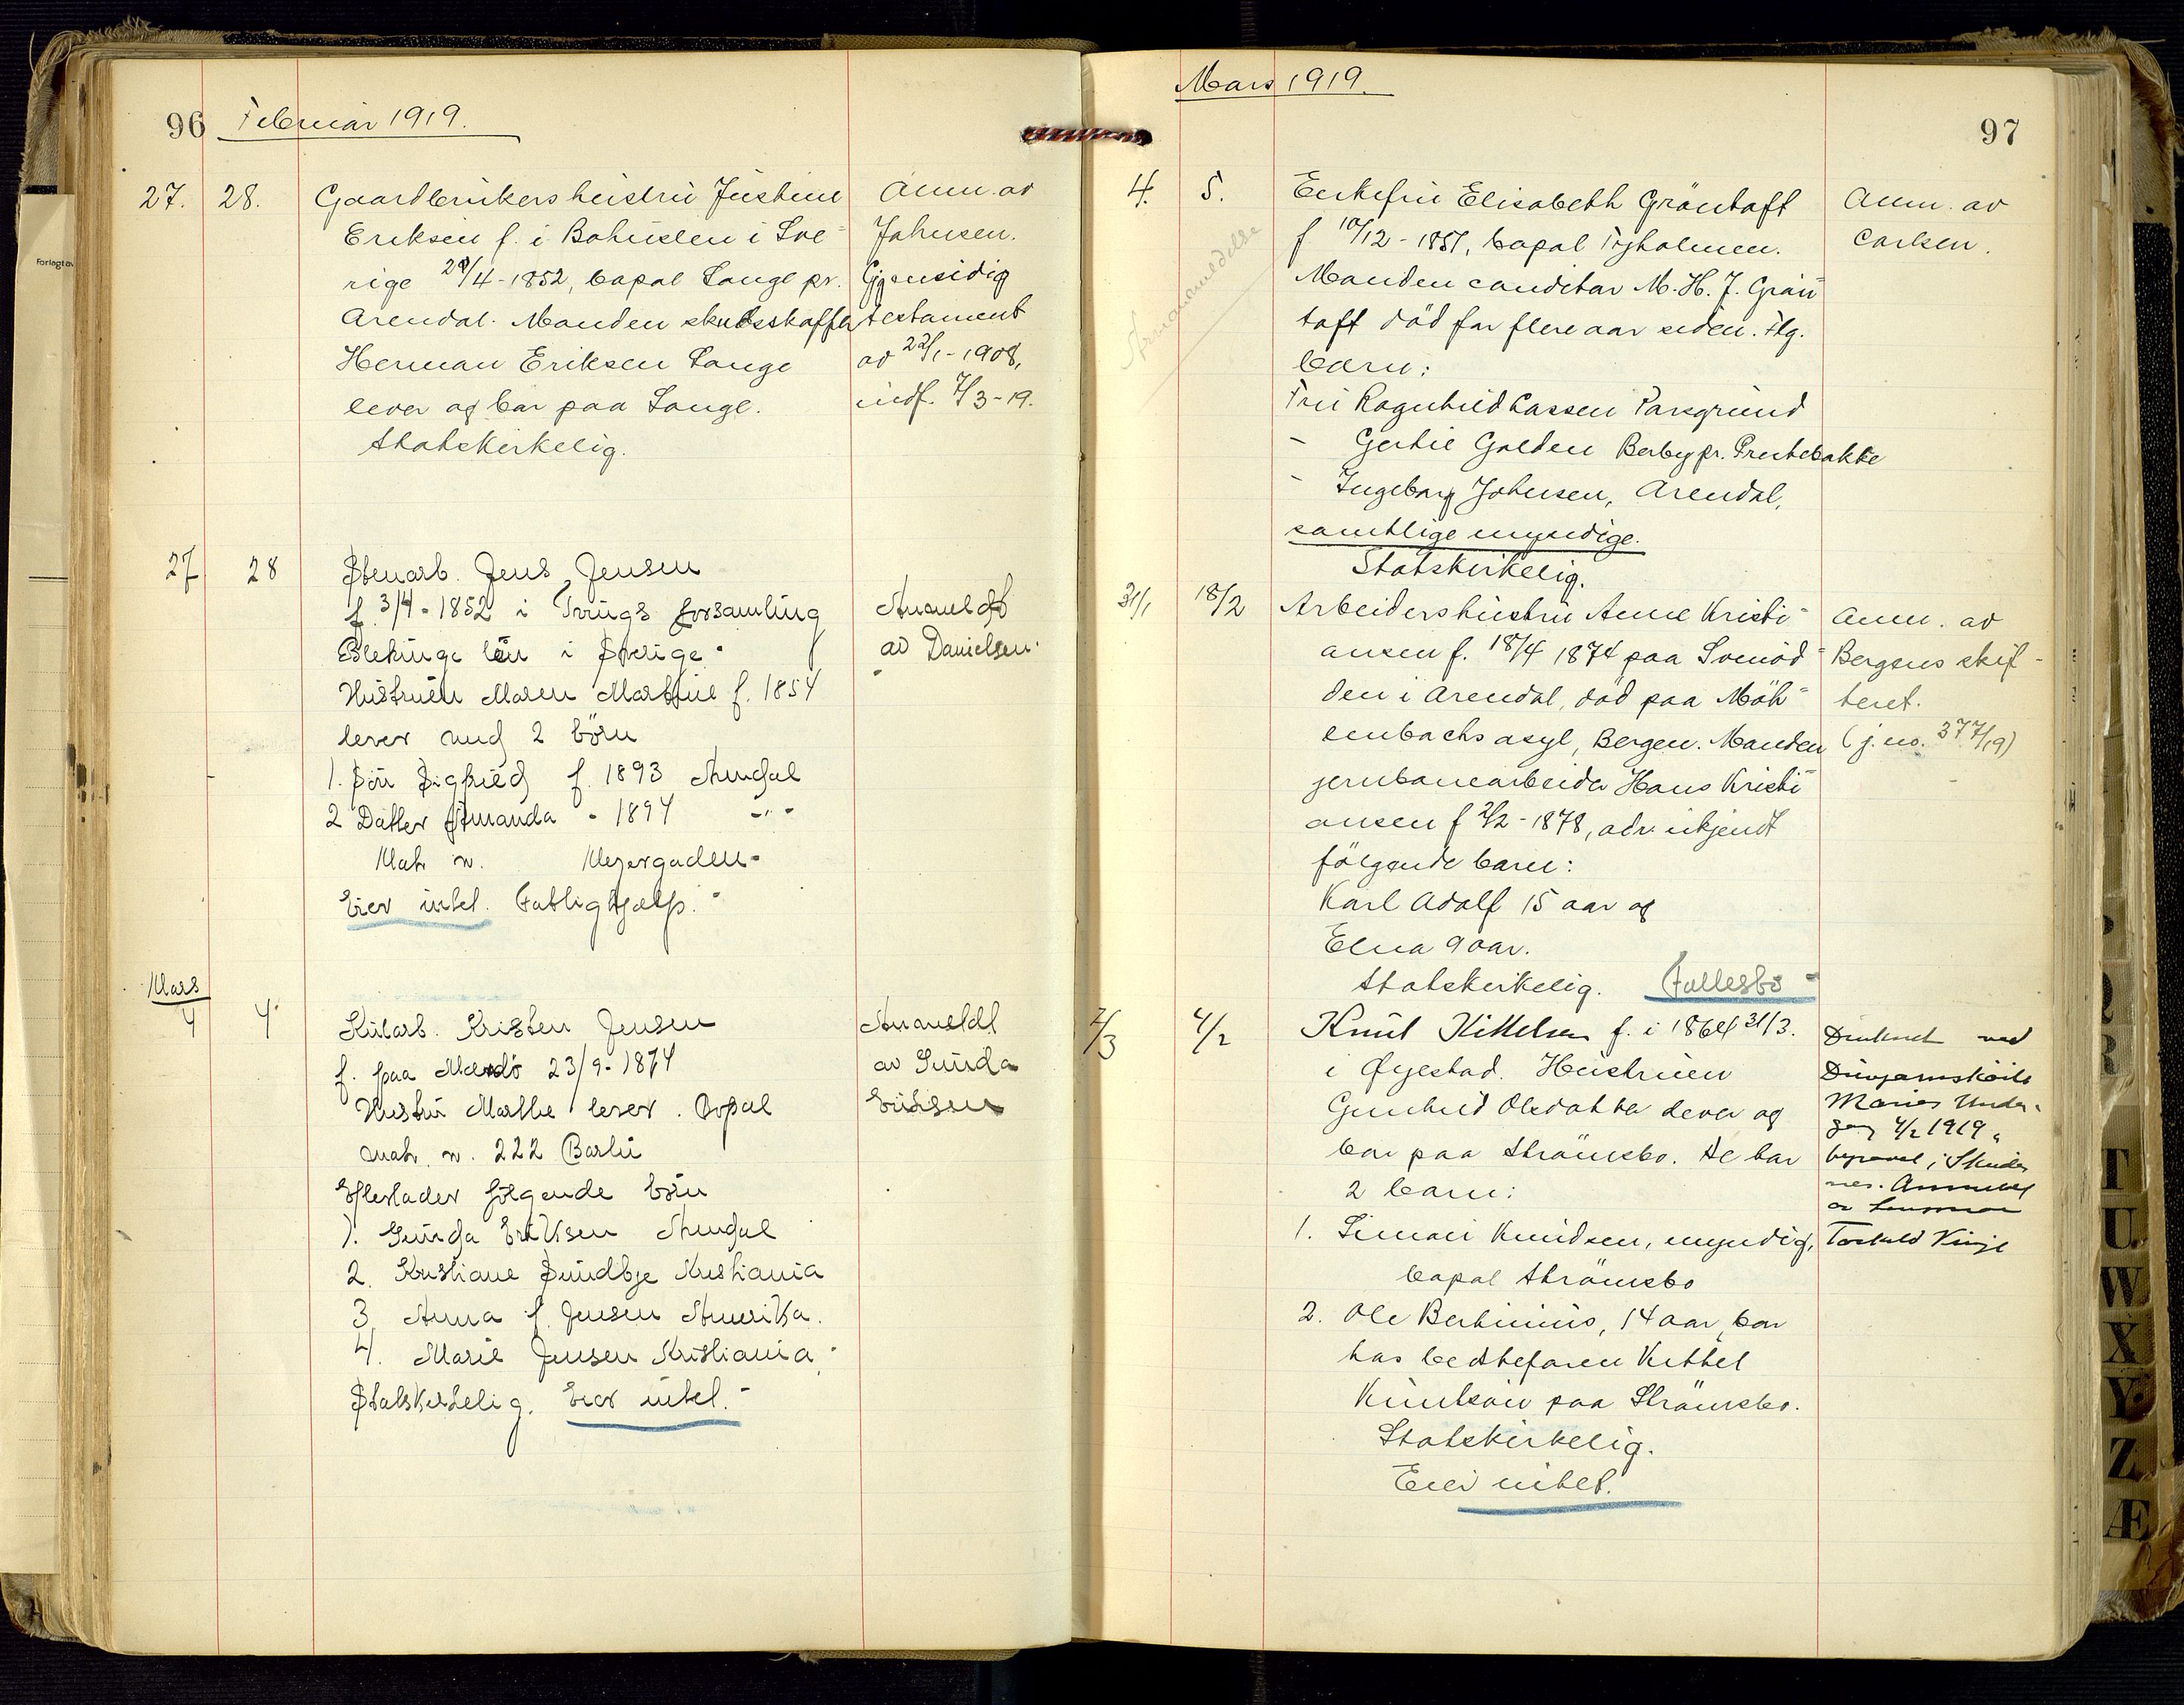 96 Februar 1919.
27. 28. Gaardbrukershustru Justine
Eriksen f. i Bohuslen i Sve-
rige 28/4-1852, bopæl Longe pr.
Arendal. Manden skudsskaffer
Herman Eriksen Longe
lever og bor paa Longe.
Statskirkelig.
Anm. av
Johnsen.
Gjensidig
testament
av 22/1-1908,
indf. 7/3-19.
27 28 Stenarb. Jens Jensen
f. 3/4-1852 i Tvings forsamling
Blekinge len i Sverige.
Hustruen Maren Martine f. 1854
lever med 2 børn
1. Søn Sigfried f. 1893 Arendal
2 Datter Amanda - 1894 -"-
Matr n. Meyergaden-
Eier intet. Fattighjælp.
Anmeldt
av Danielsen.
Mars
4 4 Kularb. Kristen Jensen
f. paa Mærdø 23/9-1874
Hustru Marthe lever. Bopæl
matr. n. 222 Barbu
Efterlader følgende børn
1. Gunda Eriksen Arendal
2. Kristiane Sundbye Kristiania
3. Anna f. Jensen Amerika.
4. Marie Jensen Kristiania.
Statskirkelig. Eier intet.-
Anmeldt
av Gunda
Eriksen
Mars 1919.
97
4. 5. Enkefru Elisabeth Gröntoft
f 10/12-1851, bopæl Tyholmen.
Manden conditor M. H. J. Grön-
toft död for flere aar siden. Flg.
barn:
Fru Ragnhild Lassen Porsgrund
- Gertie Golden Berby pr. Prestebakke
- Ingeborg Johnsen, Arendal,
samtlige myndige.
Statskirkelig.
Anm. av
Carlsen.
31/1 18/2 Arbeidershustru Anne Kristi-
ansen f. 18/4 1874 paa Svenöd-
den i Arendal, död paa Möh-
lenbachs asyl, Bergen. Manden
jernbanearbeider Hans Kristi-
ansen f 2/2-1878, adr. ukjendt
fölgende barn:
Karl Adolf 15 aar og
Elna 9 aar.
Statskirkelig. Fallesbo-
Anm. av
Bergens skif-
teret.
(j. no. 377/19)
7/3 4/2 Knut Kittelsen f. i 1864 31/3.
i Øyestad. Hustruen
Gunhild Olsdatter lever og
bor paa Strömsbo. De har
2 barn:
1. Simon Knudsen, myndig,
bopæl Strömsbo
2. Ole Bertinius, 14 aar, bor
hos bedstefaren Kittel
Knutson paa Strömsbo.
Statskirkelig.
Eier intet.
Druknet ved
Maries Under-
gang 4/2 1919,
begravet i Skudes
nes. Anmeldt